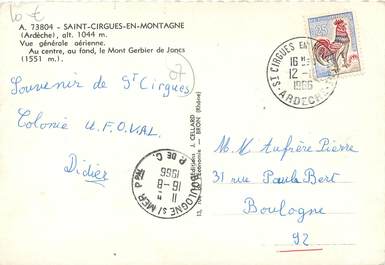 10 €
A. 73804 - SAINT-CIRGUES-EN-MONTAGNE
(Ardèche), alt. 1044 m.
Vue générale aérienne.
Au centre, au fond, le Mont Gerbier de Joncs
(1551 m.).
07
Souvenir de St Cirgues
Colonie U.F.O.VAL.
Didier
J. CELLARD
BRON (Rhône)
BOULOGNE S/ MER PPAL
P. DE C.
11 H
16-8
1966
0,25
ST CIRGUES EN
16 H
12-
1966
ARDECHE
M. Aufière Pierre
31 rue Paul Bert
Boulogne
92